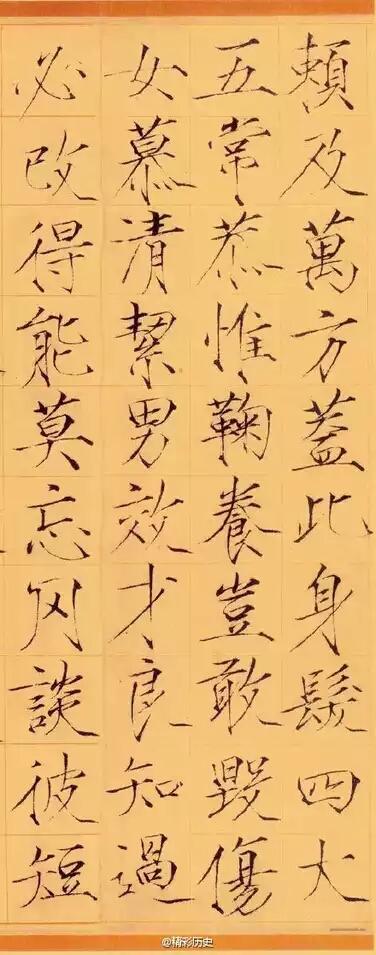 頼及萬方蓋此身髮四大
五常恭惟鞠養豈敢毀傷
女慕清絜男效才良知過
必改得能莫忘罔談彼短
@精彩历史